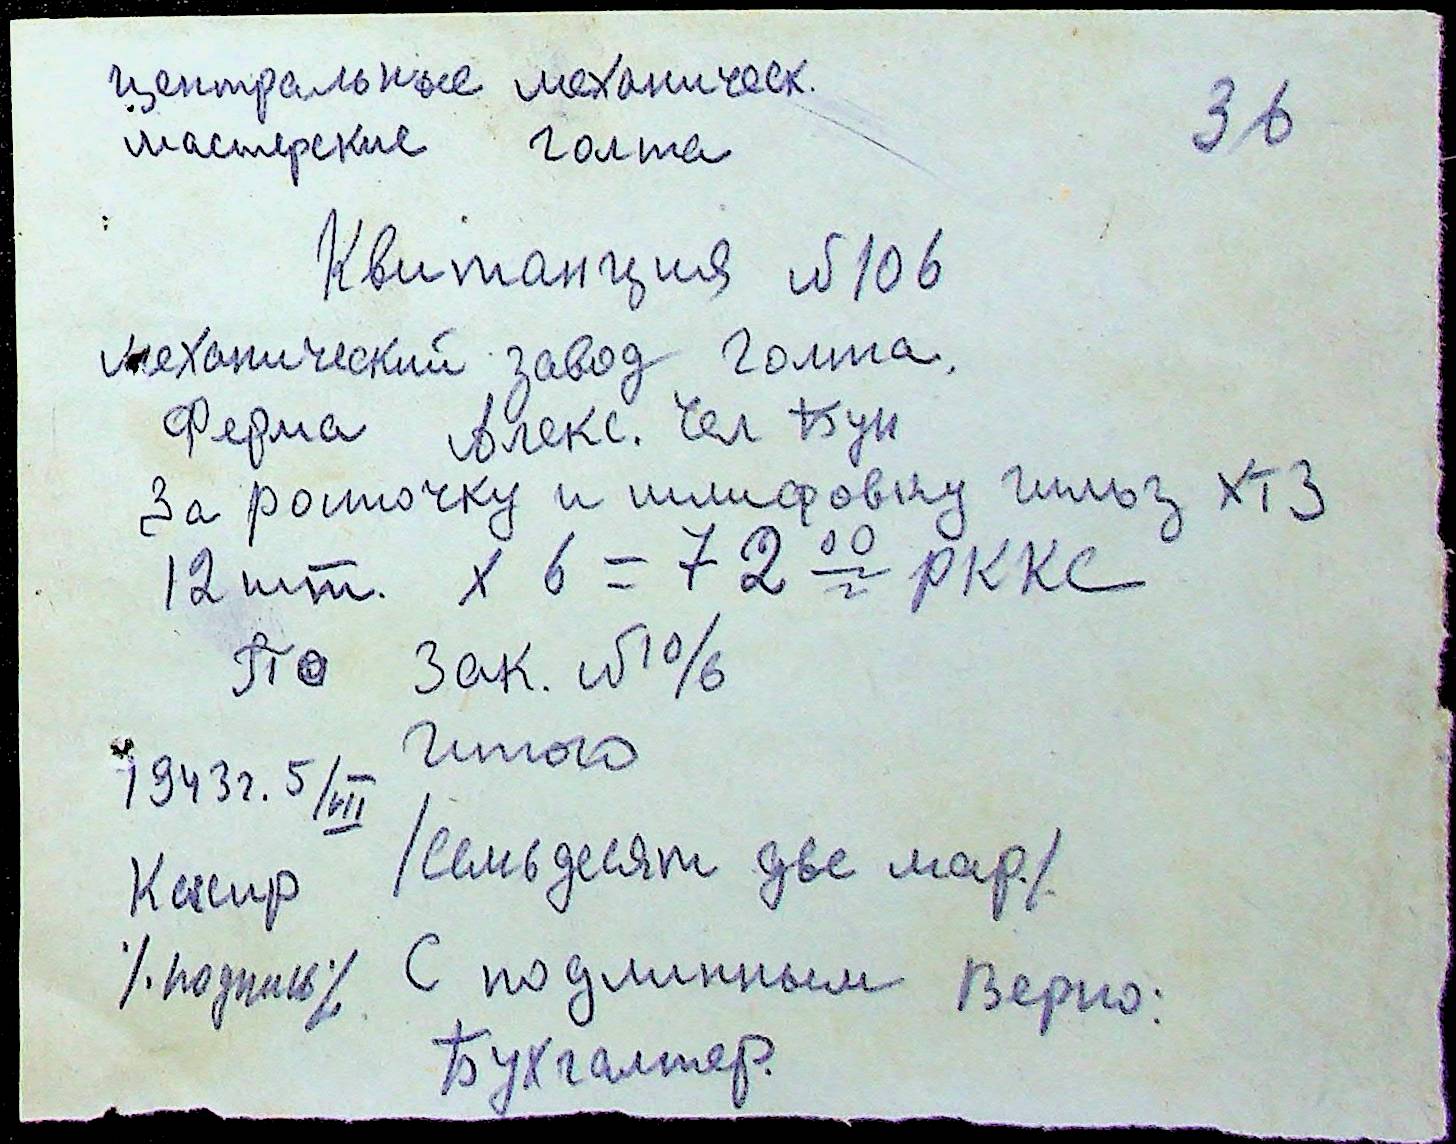 центральные механическ.
мастерские голта
36
Квитанция № 106
механический завод голта.
Ферма Алекс. Чел Бун
За росточку и шлифовку гильз ХТЗ
12 шт. х 6 = 72 00 РККС
По Зак. № 10/6
Итого
1943г. 5/VIII
/Семьдесят две мар./.
Касир
/.подпись/.
С подлинным Верно:
Бухгалтер.